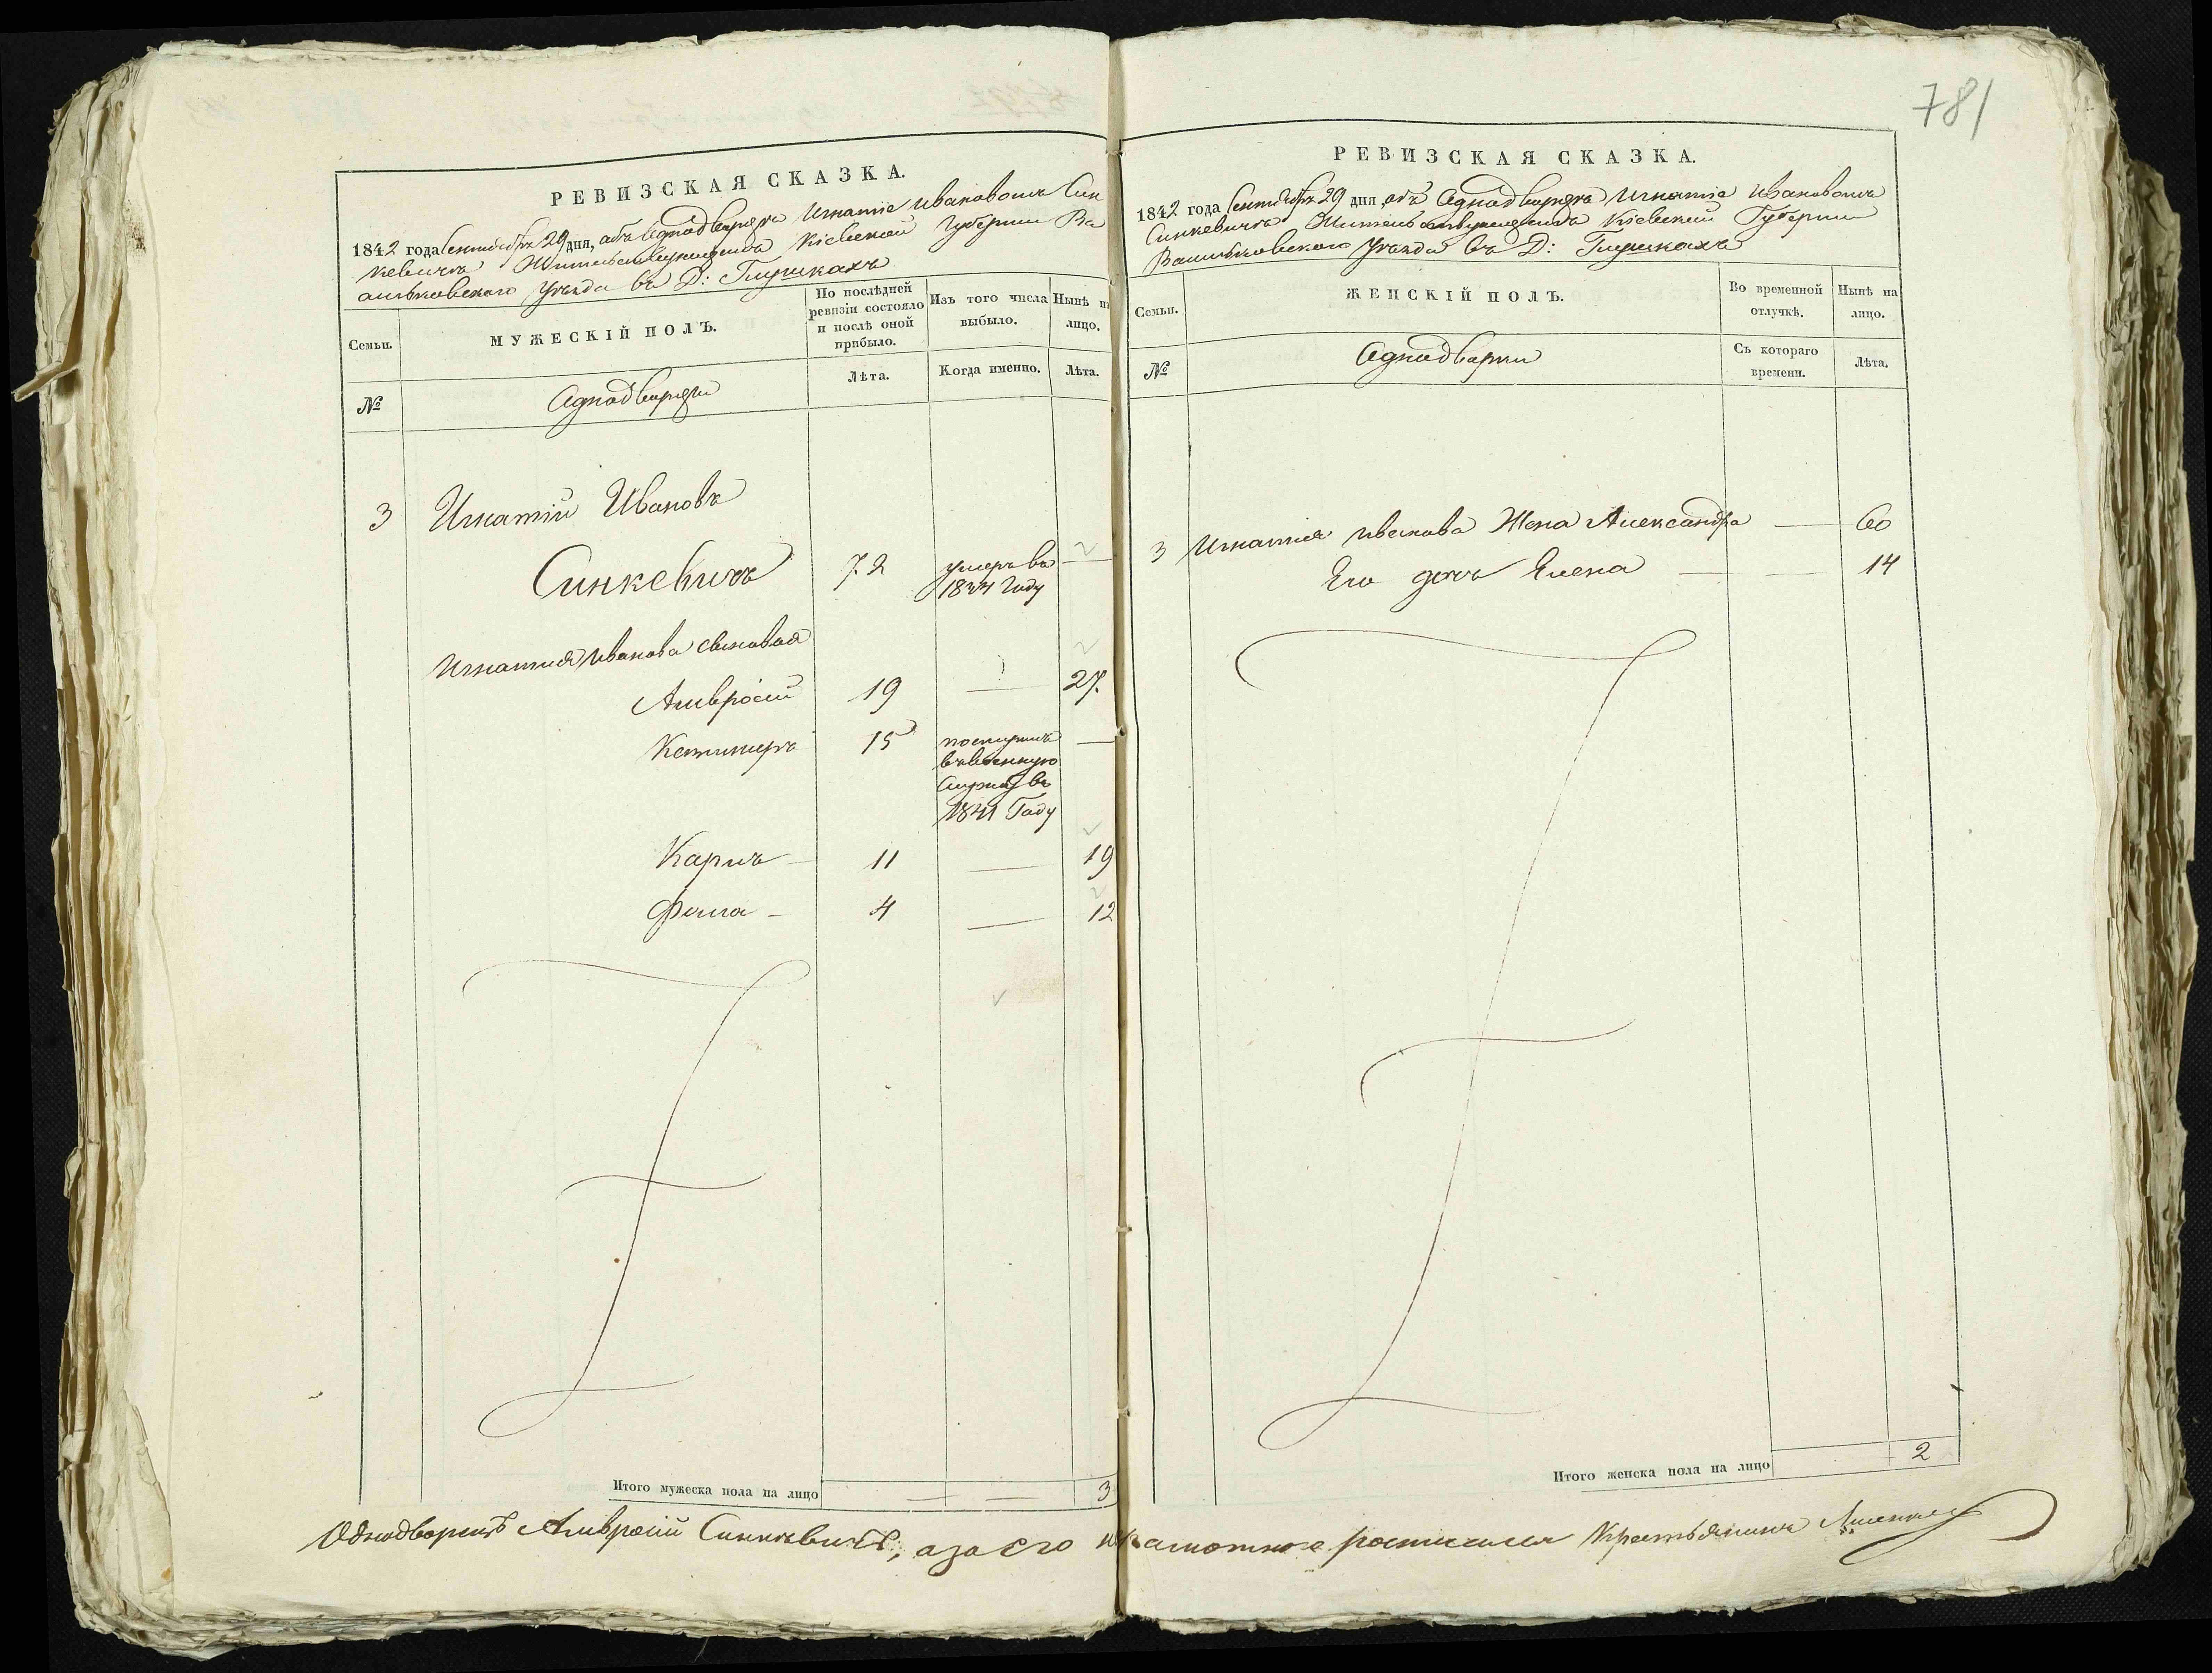 781
РЕВИЗСКАЯ СКАЗКА.
1842 года Сентября 29 дня, объ Аднодворце Игнатіе Ивановомъ Син
кевичъ Жительствующемъ Кіевской Губерніи Ва
сильковскаго Уезда въ Д:
Семьи.
МУЖЕСКІЙ ПОЛЪ.
По послѣдней ревизіи состояло и послѣ оной прибыло.
Изъ того числа выбыло.
Нынѣ на лицо.
№
Аднодворцы
Лѣта.
Когда именно.
Лѣта.
3 Игнатій Ивановъ
Синкевичъ 72 умеръ въ —
Году
Игнатия Иванова сыновья
Амвросій 19 — 27.
Казимиръ 15 поступилъ —
въ военную
службу въ
1841 Году
Карлъ — 11 — 19
Фома — 4 — 12
Итого мужеска пола на лицо — — 3
РЕВИЗСКАЯ СКАЗКА.
1842 года Сентября 29 дня, объ Аднодворце Игнатіе Ивановомъ
Синкевичъ Жительствующемъ Кіевской Губерніи
Васильковского Уезда въ Д:
Семьи.
ЖЕНСКІЙ ПОЛЪ.
Во временной отлучкѣ.
Нынѣ на лицо.
№
Аднодварки
Съ котораго времени.
Лѣта.
3 Игнатия Иванова Жена Александра — 60
Его дочь Елена — — 14
Итого женска пола на лицо 2
Однодворецъ Амвросій Синкевичъ, а за его неграмотнаго росписался Крестьянинъ